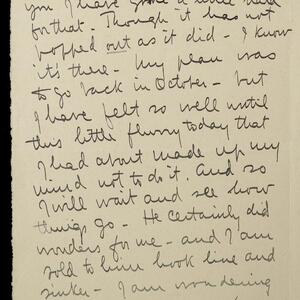 you I have a little
for that - Though it has not
popped out as it did - I know
it's there - My plan was
to go back in October - but
I have felt so well until
this little flurry today that
I had about made up my
mind not to do it. And so
I will wait and see how
things go - He certainly did
wonders for me - and I am
sold to him hook line and
sinker - I am wondering